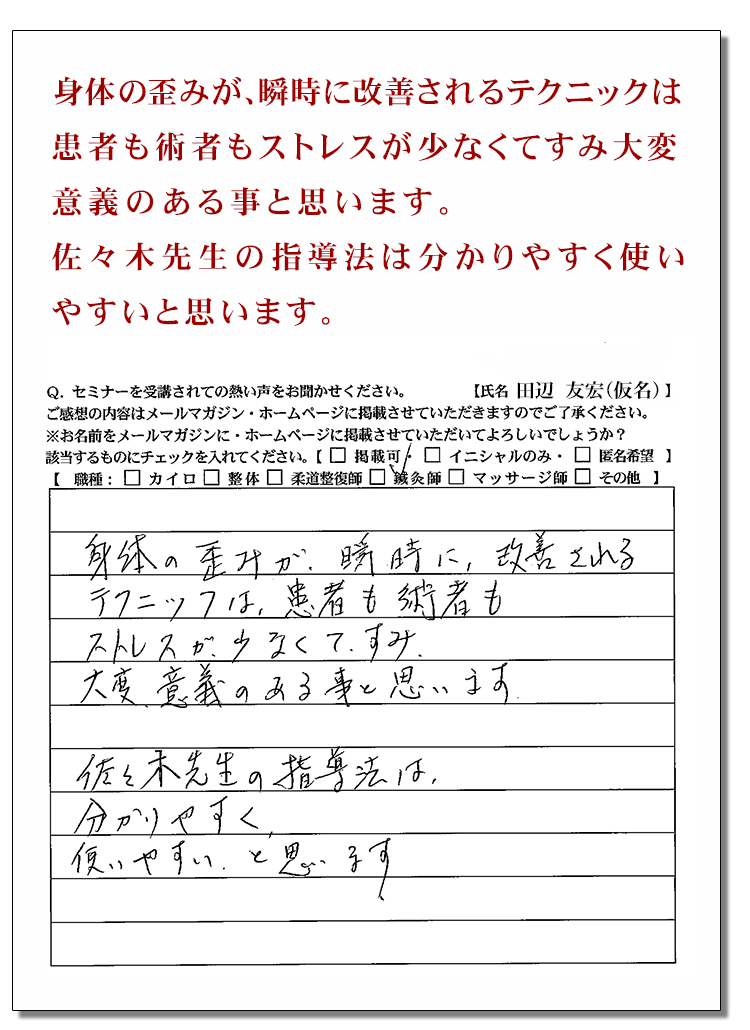 身体の歪みが、瞬時に改善されるテクニックは
患者も術者もストレスが少なくてすみ大変
意義のある事と思います。
佐々木先生の指導法は分かりやすく使い
やすいと思います。
Q. セミナーを受講されての熱い声をお聞かせください。 【氏名 田辺 友宏(仮名)】
ご感想の内容はメールマガジン・ホームページに掲載させていただきますのでご了承ください。
※お名前をメールマガジンに・ホームページに掲載させていただいてよろしいでしょうか？
該当するものにチェックを入れてください。【 □ 掲載可・ □ イニシャルのみ・ □ 匿名希望 】
【 職種： □ カイロ □ 整体 □ 柔道整復師 □ 鍼灸師 □ マッサージ師 □ その他 】
身体の歪みが、瞬時に、改善される
テクニックは、患者も術者も
ストレスが、少なくて、すみ、
大変、意義のある事と思います。
佐々木先生の指導法は、
分かりやすく、
使いやすい、と思います